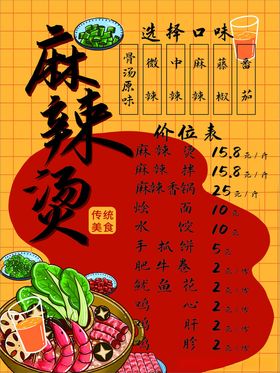 麻辣烫
传统
美食
选择口味
骨汤原味
微辣
中辣
麻辣
藤椒
番茄
价位表
麻辣烫 15.8元/斤
麻辣拌 15.8元/斤
麻辣香锅 25元/斤
烩面 10元
水饺 10元
手抓饼 5元
肥牛卷 2元/份
鱿鱼花 2元/份
鸡心 2元/份
鸡肝 2元/份
鸡胗 2元/份